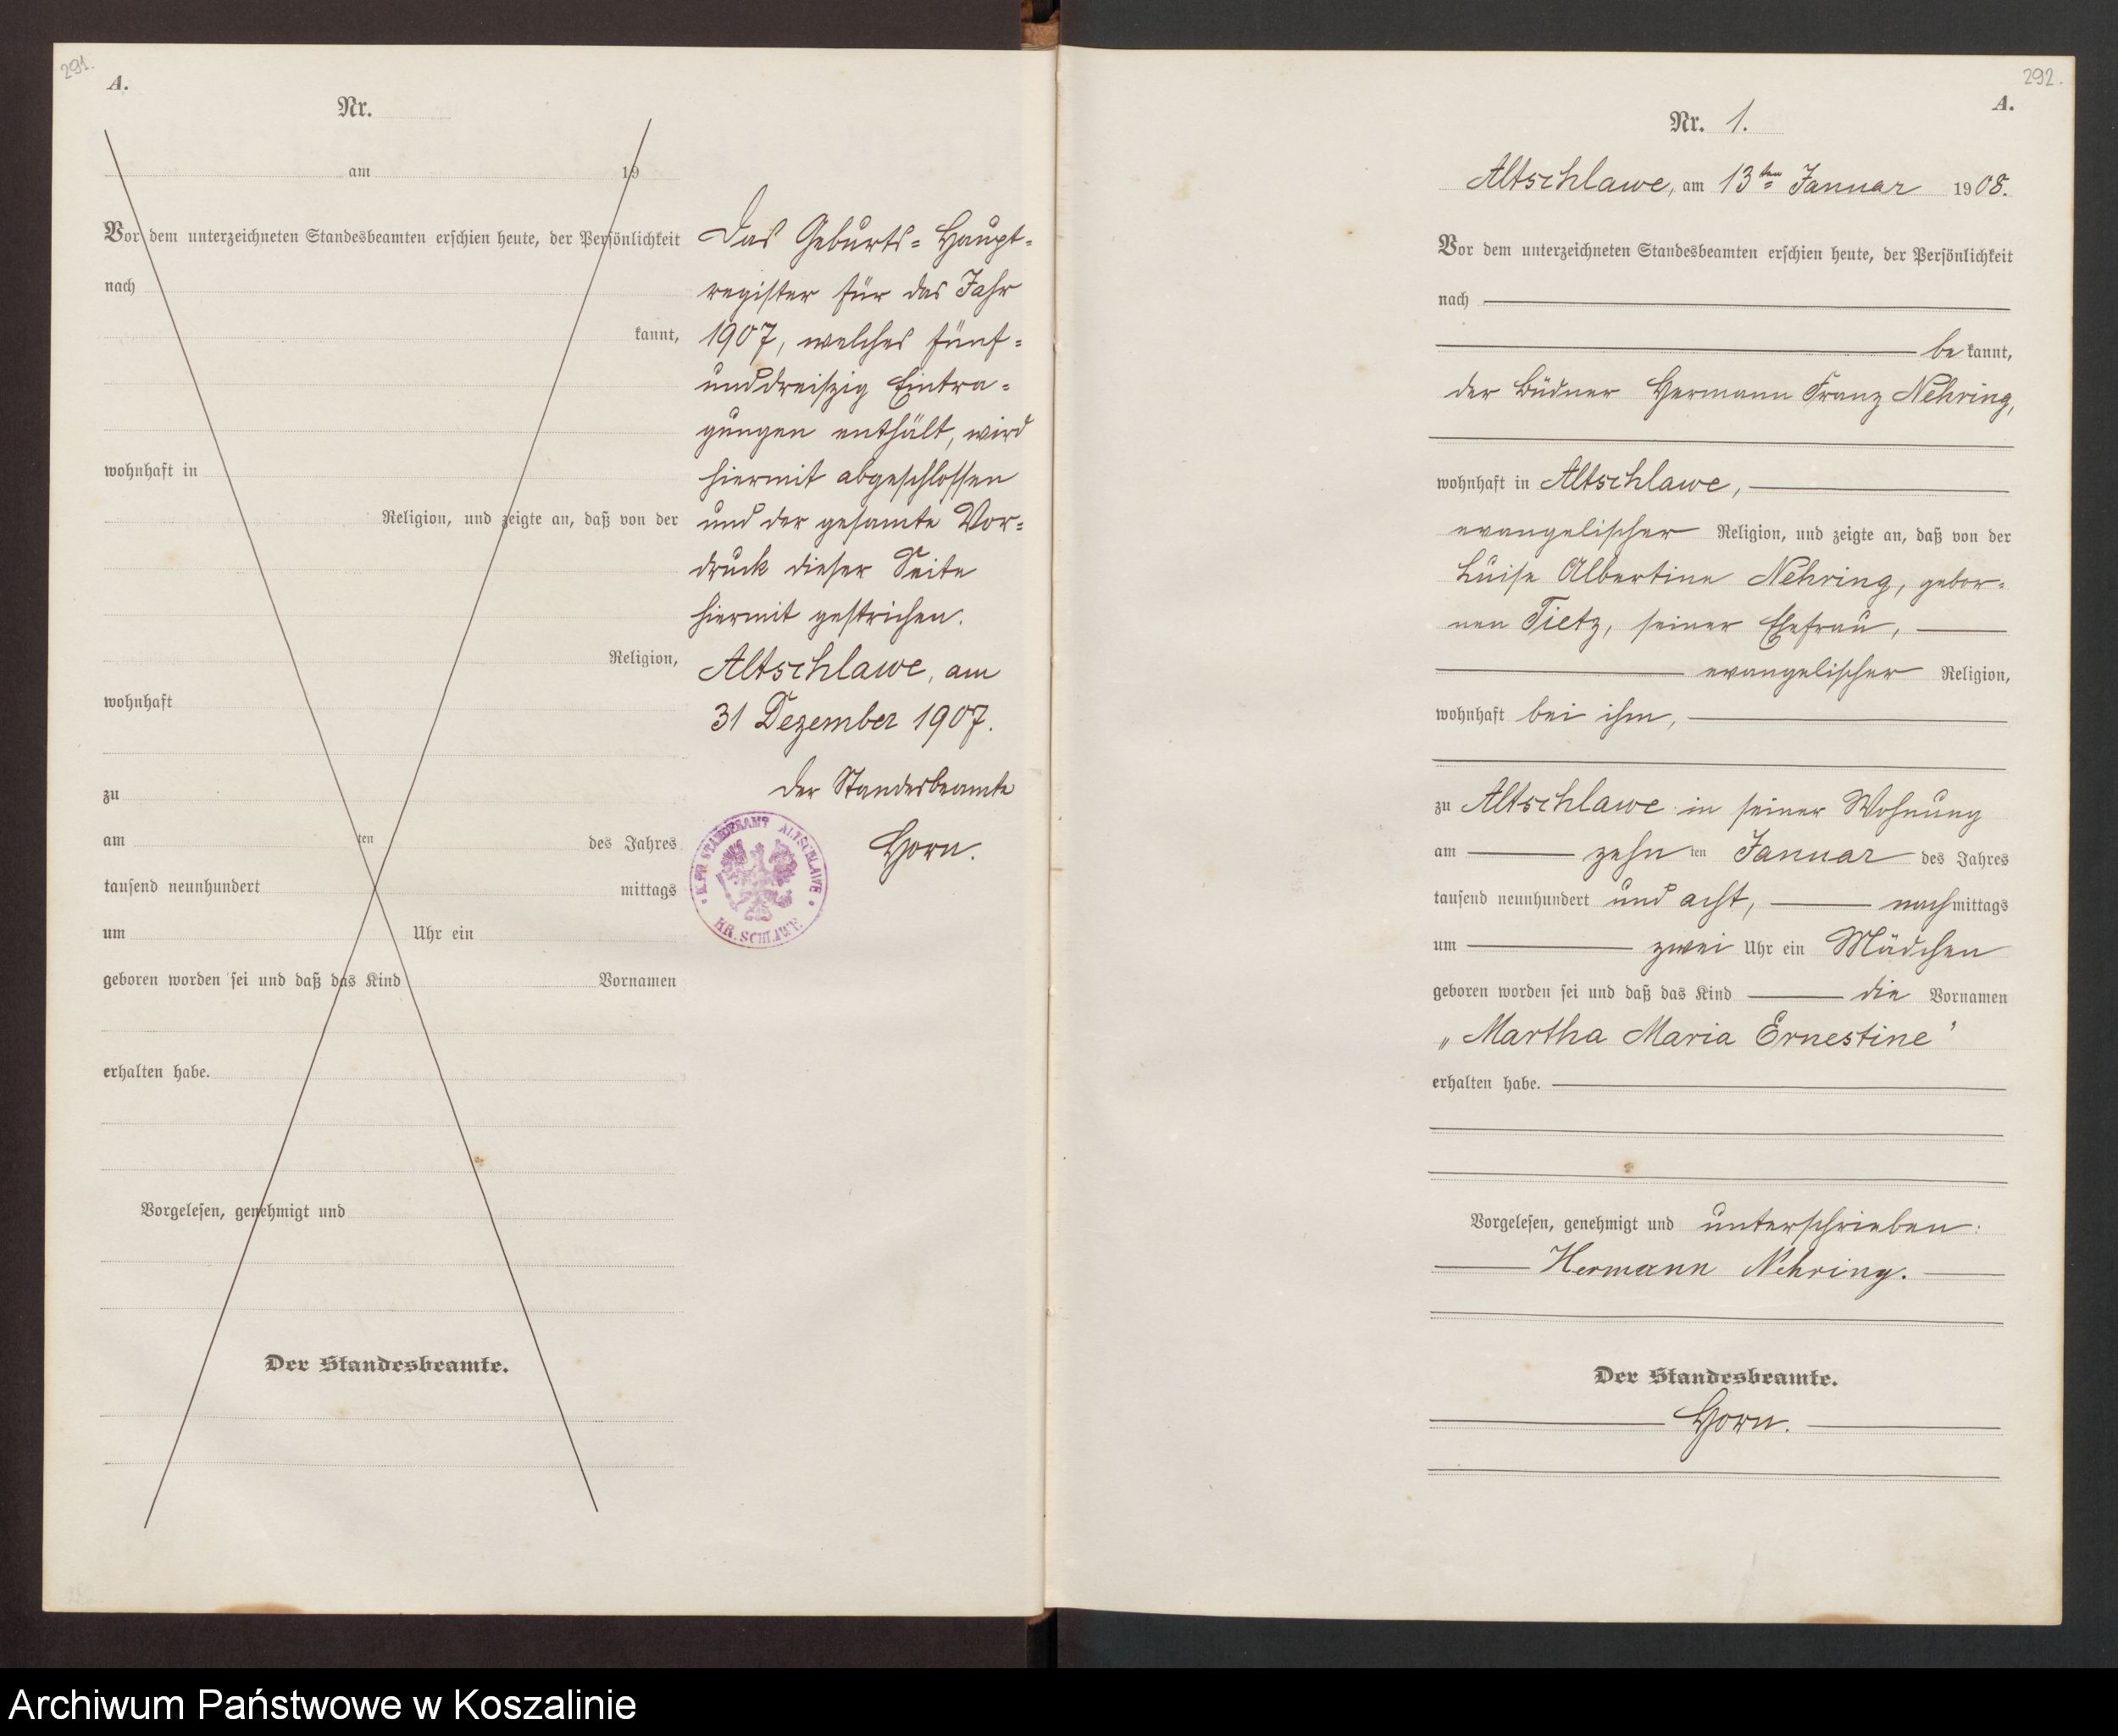 291.
A.
Nr.
am 19
Vor dem unterzeichneten Standesbeamten erschien heute, der Persönlichkeit
nach
kannt,
wohnhaft in
Religion, und zeigte an, daß von der
Religion,
wohnhaft
zu
am ten des Jahres
tausend neunhundert mittags
um Uhr ein
geboren worden sei und daß das Kind Vornamen
erhalten habe.
Vorgelesen, genehmigt und
Der Standesbeamte.
Das Geburts-Haupt-
register für das Jahr
1907, welches fünf-
unddreiszig Eintra-
gungen enthält, wird
hiermit abgeschlossen
und der gesamte Vor-
druck dieser Seite
hiermit gestrichen.
Altschlawe, am
31 Dezember 1907.
Der Standesbeamte
Horn.
K. PR. STANDESAMT ALTSCHLAWE
KR. SCHLAWE
292.
A.
Nr. 1.
Altschlawe, am 13ten Januar 1908.
Vor dem unterzeichneten Standesbeamten erschien heute, der Persönlichkeit
nach
be kannt,
der Büdner Hermann Franz Nehring,
wohnhaft in Altschlawe,
evangelischer Religion, und zeigte an, daß von der
Luise Albertine Nehring, gebor-
nen Tietz, seiner Ehefrau,
evangelischer Religion,
wohnhaft bei ihm,
zu Altschlawe in seiner Wohnung
am zehn ten Januar des Jahres
tausend neunhundert und acht, nachmittags
um zwei Uhr ein Mädchen
geboren worden sei und daß das Kind die Vornamen
„Martha Maria Ernestine"
erhalten habe.
Vorgelesen, genehmigt und unterschrieben:
Hermann Nehring.
Der Standesbeamte.
Horn.
Archiwum Państwowe w Koszalinie